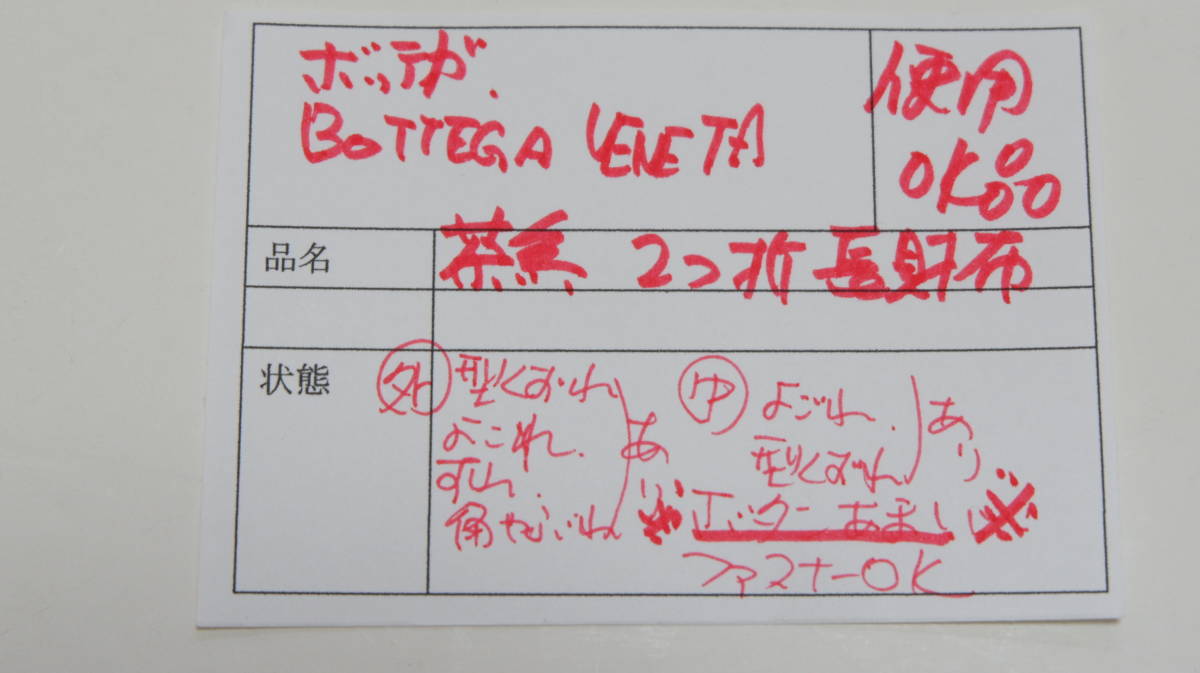 ボッテガ.
BOTTEGA VENETA
使用
OK品
品名
茶系 2つ折 長財布
状態
外 型くずれ
よごれ.
すれ.
角やぶれ
あり
中 よごれ.
型くずれ
あり
※ エンター あまし ※
ファスナーOK